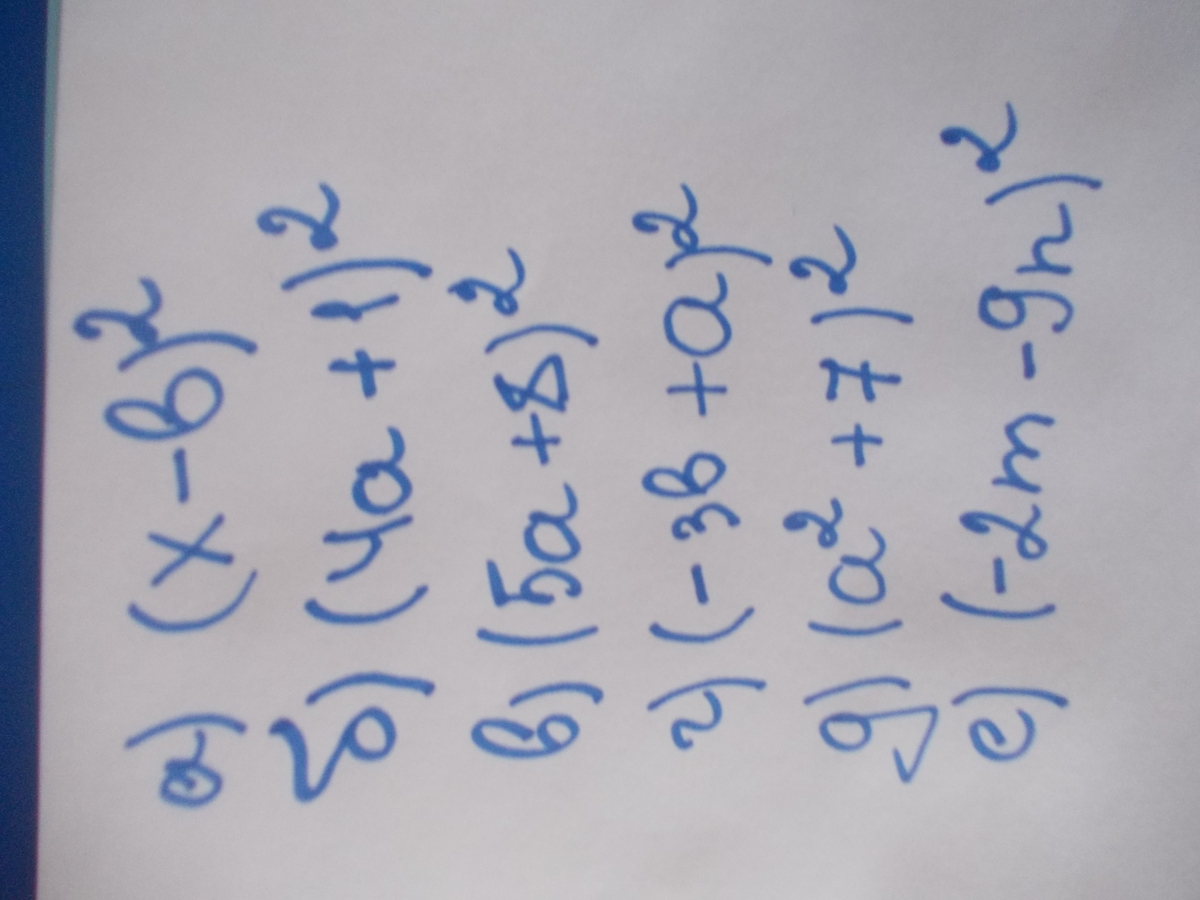 а) (x-в)²
б) (4a+1)²
в) (5a+8)²
г) (-3в+a)²
д) (a²+7)²
е) (-2m-9n)²